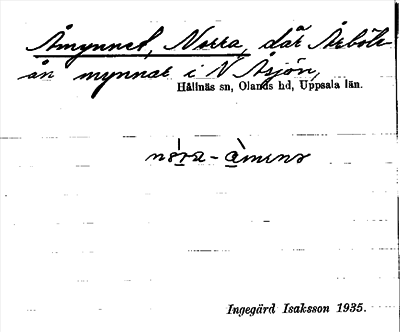 Åmynnet, Norra, där Årböle-
ån mynnar i N Åsjön,
Hållnäs sn, Olands hd, Uppsala län.
Ingegärd Isaksson 1935.